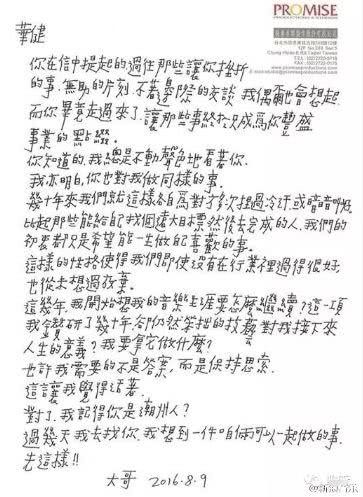 PROMISE
華健
你在信中提起的過往那些讓你挫折
的事、無助的片刻、不著邊際的交談 我偶爾也會想起
而你畢竟走過來了、讓那些事終於只成為你豐盛
事業的點綴。
你知道的、我總是不動聲色地看著你、
我亦明白、你也對我做同樣的事。
幾十年來我們就這樣各自為對方多次捏過冷汗或暗暗叫好
比起那些能給自己找個遠大目標然後去完成的人、我們的
初衷都只是希望能一生做自己喜歡的事。
這樣的性格使得我們即使沒有在行業裡過得很好
也從未想過放棄。
這幾年、我開始想我的音樂生涯要怎麼繼續？這一項
我鑽研了幾十年卻仍然笨拙的技藝對我接下來
人生的意義？我要拿它做什麼？
也許我需要的不是答案、而是保持思索、
這讓我覺得活著。
對了、我記得你是潮州人？
過幾天我去找你、我想到一件咱倆可以一起做的事、
先這樣!!
大哥 2016.8.9